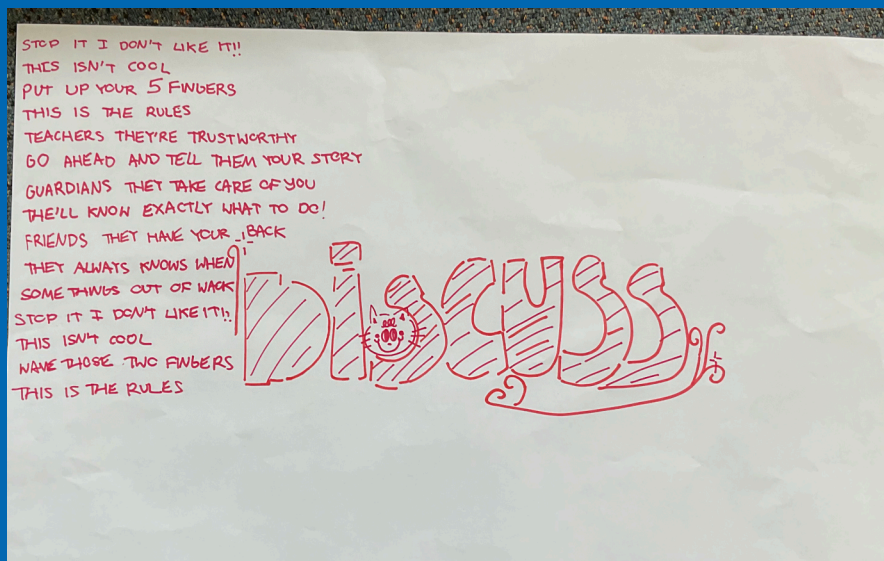 STOP IT I DON'T LIKE IT!!
THIS ISN'T COOL
PUT UP YOUR 5 FINGERS
THIS IS THE RULES
TEACHERS THEY'RE TRUSTWORTHY
GO AHEAD AND TELL THEM YOUR STORY
GUARDIANS THEY TAKE CARE OF YOU
THE'LL KNOW EXACTLY WHAT TO DO!
FRIENDS THEY HAVE YOUR BACK
THEY ALWAYS KNOWS WHEN
SOME THINGS OUT OF WACK
STOP IT I DON'T LIKE IT!!
THIS ISN'T COOL
WAVE THOSE TWO FINGERS
THIS IS THE RULES
DiSCUSS